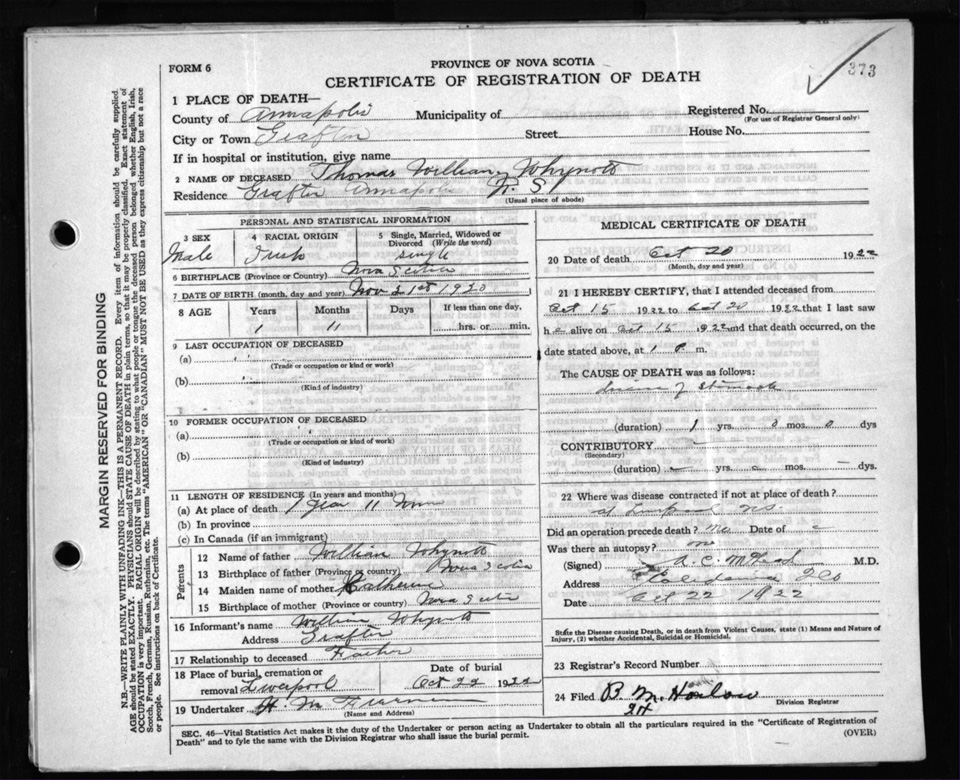 373
FORM 6
PROVINCE OF NOVA SCOTIA
CERTIFICATE OF REGISTRATION OF DEATH
1 PLACE OF DEATH—
County of Annapolis Municipality of Registered No.
(For use of Registrar General only)
City or Town Grafton Street House No.
If in hospital or institution, give name
2 NAME OF DECEASED Thomas William Whynott
Residence Grafton Annapolis N. S.
(Usual place of abode)
PERSONAL AND STATISTICAL INFORMATION
3 SEX
Male
4 RACIAL ORIGIN
Irish
5 Single, Married, Widowed or Divorced (Write the word)
Single
6 BIRTHPLACE (Province or Country) Nova Scotia
7 DATE OF BIRTH (month, day and year) Nov 21st 1920
8 AGE Years Months Days If less than one day.
1 11 hrs. or min.
9 LAST OCCUPATION OF DECEASED
(a)
(Trade or occupation or kind or work)
(b)
(Kind of industry)
10 FORMER OCCUPATION OF DECEASED
(a)
(Trade or occupation or kind of work)
(b)
(Kind of industry)
11 LENGTH OF RESIDENCE (In years and months)
(a) At place of death 1 Year 11 Mon
(b) In province
(c) In Canada (if an immigrant)
Parents
12 Name of father William Whynott
13 Birthplace of father (Province or country) Nova Scotia
14 Maiden name of mother Catherine
15 Birthplace of mother (Province or country) Nova Scotia
16 Informant's name William Whynott
Address Grafton
17 Relationship to deceased Father
18 Place of burial, cremation or removal Liverpool
Date of burial Oct 22 1922
19 Undertaker H. M.
(Name and Address)
MEDICAL CERTIFICATE OF DEATH
20 Date of death Oct 20 1922
(Month, day and year)
21 I HEREBY CERTIFY, that I attended deceased from
Oct 15 1922 to Oct 20 1922 that I last saw
h alive on Oct 15 1922 and that death occurred, on the
date stated above, at 1 m.
The CAUSE OF DEATH was as follows:
(duration) 1 yrs. mos. dys
CONTRIBUTORY
(Secondary)
(duration) yrs. mos. dys.
22 Where was disease contracted if not at place of death?
at Liverpool N.S.
Did an operation precede death? No Date of
Was there an autopsy? no
(Signed) A. C. M.D.
Address Caledonia
Date Oct 22 1922
State the Disease causing Death, or in death from Violent Causes, state (1) Means and Nature of
Injury, (2) whether Accidental, Suicidal or Homicidal.
23 Registrar's Record Number
24 Filed B. M. Harlow
Division Registrar
SEC. 46—Vital Statistics Act makes it the duty of the Undertaker or person acting as Undertaker to obtain all the particulars required in the "Certificate of Registration of
Death" and to fyle the same with the Division Registrar who shall issue the burial permit.
(OVER)
MARGIN RESERVED FOR BINDING
N.B.—WRITE PLAINLY WITH UNFADING INK—THIS IS A PERMANENT RECORD. Every item of information should be carefully supplied.
AGE should be stated EXACTLY. PHYSICIANS should STATE CAUSE OF DEATH in plain terms, so that it may be properly classified. Exact statement of
OCCUPATION is very important. RACIAL ORIGIN will be described by stating to what people or tongue the deceased person belonged whether English, Irish,
Scotch, French, German, Russian, Ruthenian, etc. The terms "AMERICAN" OR "CANADIAN" MUST NOT BE USED as they express citizenship but not a race
or people. See instructions on back of Certificate.